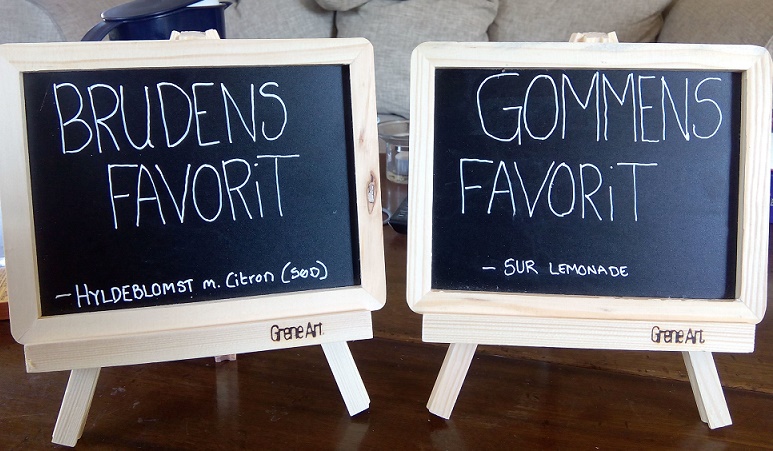 BRUDENS
FAVORiT
- HYLDEBLOMST m. Citron (SØD)
Grene Art.
GOMMENS
FAVORiT
- SUR LEMONADE
Grene Art.